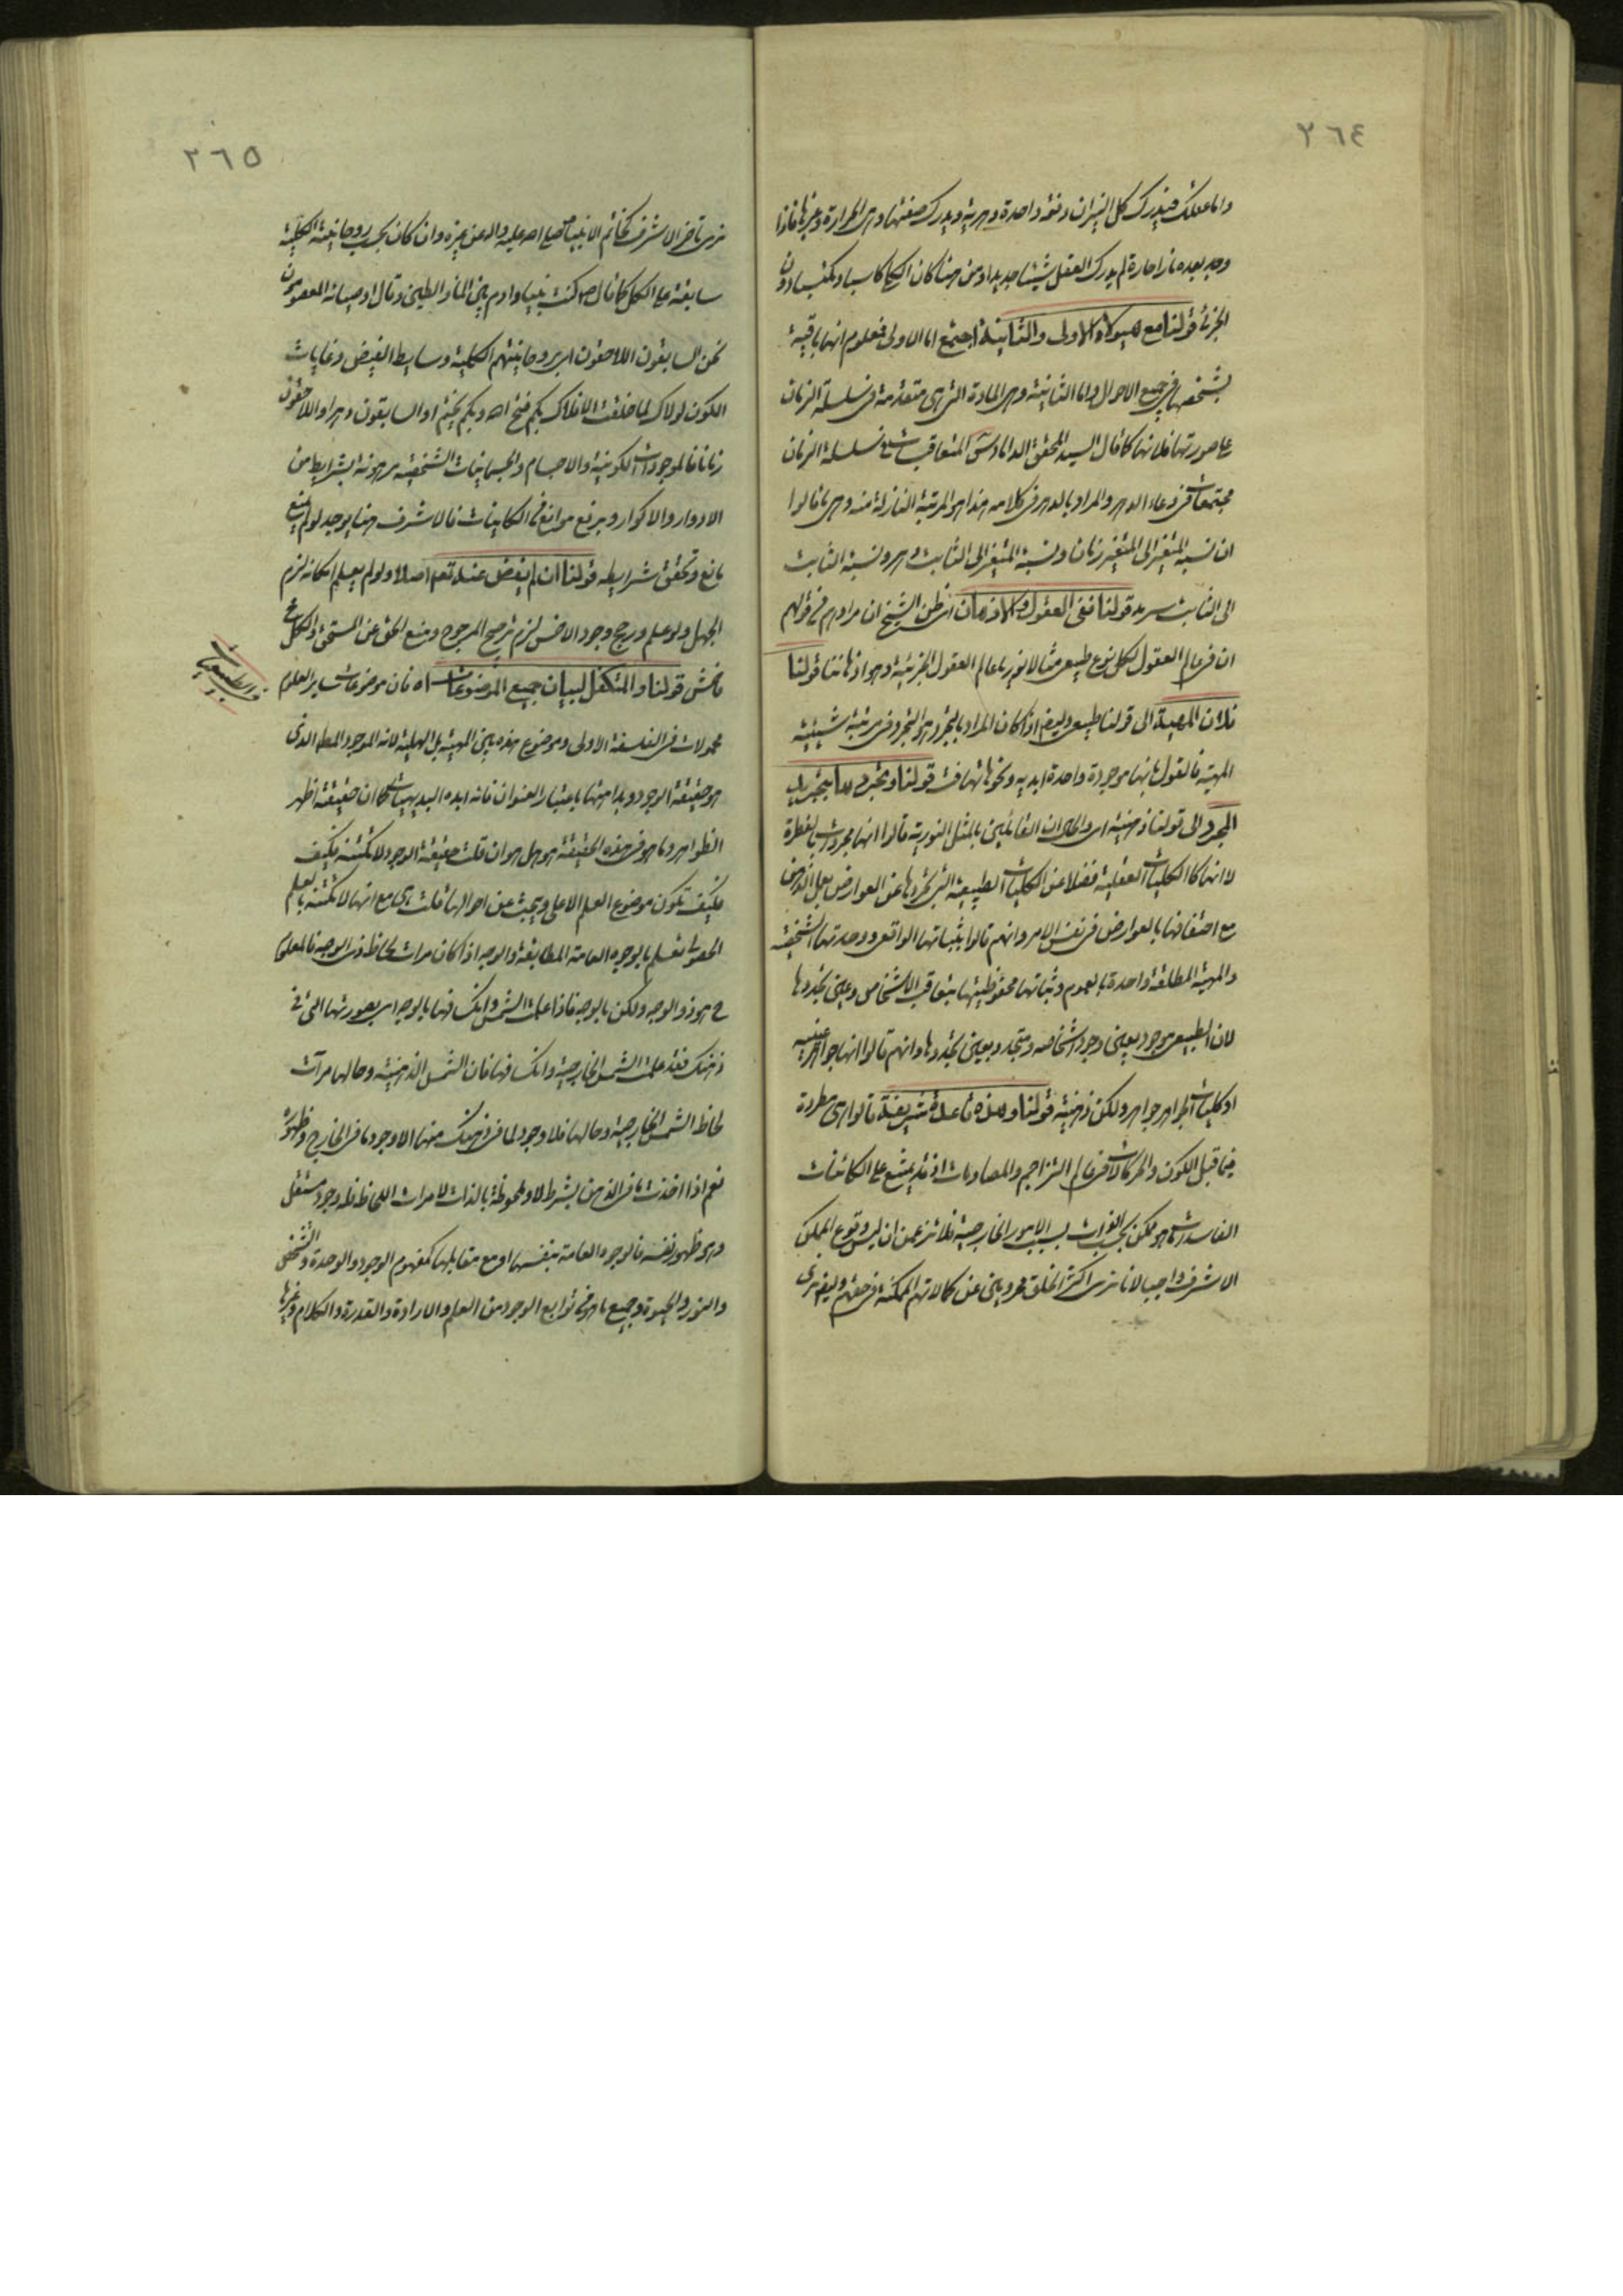 ٢٦٤
واما عقلك فيدرك كل النيران دفعة واحدة دهرية ويدرك صفتها وهى الحرارة وغيرها فاذا
وجد بعده نار حارة لم يدرك العقل شيئا جديدا ومن هنا كان الكلى كاسبا ومكتسبا دون
الجزئى قولنا مع هيولاه الاولى والثانية اجتمع اما الاولى فمعلوم انها باقية
بشخصها فى جميع الاحوال واما الثانية وهى المادة التى هى متقدمة فى سلسلة الزمان
على صورتها فلانها كما قال السيد المحقق الداماد س المتعاقبات فى سلسلة الزمان
مجتمعات فى وعاء الدهر والمراد بالدهر فى كلامه هذا هو المرتبة النازلة منه وهى ما قالوا
ان نسبة المتغير الى المتغير زمان ونسبة المتغير الى الثابت دهر ونسبة الثابت
الى الثابت سرمد قولنا ففى العقول والاذهان اى ظن الشيخ ان مرادهم فى قولهم
ان فى عالم العقول لكل نوع طبيعى مثالا نوريا عالم العقول الجزئية وهو اذهاننا قولنا
فلان المهية الى قولنا طبيعى وايض اذا كان المراد بالتجرد هو التجرد فى مرتبة شيئية
المهية فالقول بانها موجودة واحدة ابدية ونحوها تهافت قولنا وتجردها بتجريد
المجرد الى قولنا ذهنية اى والحال ان القائلين بالمثل النورية قالوا انها مجردات بالفطرة
لا انها كالكليات العقلية فضلا عن الكليات الطبيعية التى تجردها عن العوارض بعمل الذهن
مع احتفافها بالعوارض فى نفس الامر وانهم قالوا بثباتها الواقعى ووحدتها الشخصية
والمهية المطلقة واحدة بالعموم وثباتها محفوظيتها بتعاقب الاشخاص وعين تجددها
لان الطبيعى موجود بعين وجود اشخاصه ومتجدد بعين تجددها وانهم قالوا انها جواهر عينية
او كليات الجواهر جواهر ولكن ذهنية قولنا وهذه قاعدة شريفة قالوا هى مطردة
فيما قبل الكون والحركات لا فى عالم التزاحم والمصادمات اذ قد يمتنع على الكائنات
الفاسدات ما هو ممكن بحسب الذوات بسبب الامور الخارجية فلا تزعمن ان ليس وقوع الممكن
الاشرف واجبا لانا نرى اكثر الخلق محرومين عن كمالاتهم الممكنة فى حقهم وايض نرى
٢٦٥
نرى تاخر الاشرف كخاتم الانبياء صلى الله عليه واله عن غيره وان كان بحسب روحانيته الكلية
سابقة على الكل كما قال ص كنت نبيا وادم بين الماء والطين وقال اوصيائه المعصومون
نحن السابقون اللاحقون اى بروحانيتهم الكلية وسايط الفيض وغايات
الكون لولاك لما خلقت الافلاك بكم فتح الله وبكم يختم او السابقون دهرا واللاحقون
زمانا فالموجودات الكونية والاجسام والجسمانيات الشخصية مرهونة بشرايط من
الادوار والاكوار وبرفع موانع فى الكاينات فالاشرف هنا يوجد لو لم يمنع
مانع وتحقق شرايطه قولنا ان لم يفض عنه تعم اصلا ولو لم يعلم امكانه لزم
الجهل ولو علم ورجح وجود الاخس لزم ترجيح المرجوح ومنع الحق عن المستحق والكل
فاحش قولنا والمتكفل لبيان جميع الموضوعات اه فان موضوعات ساير العلوم
محمولات فى الفلسفة الاولى وموضوع هذه بين المهية بل الهلية لانه الموجود المط الذى
هو حقيقة الوجود وبدا منها باعتبار العنوان فانه ابده البديهيات كما ان حقيقة اظهر
الظواهر وما هو فى هذه الحقيقة هو هل هو ان قلت حقيقة الوجود لا تكتنه بكيف
فكيف تكون موضوع العلم الاعلى ويبحث عن احوالها قلت هى مع انها لا تكتنه بالعلم
الحصولى تعلم بالوجوه العامة المطابقة والوجه اذا كان مرات لحاظ ذى الوجه فالمعلوم
ح هو ذو الوجه ولكن بالوجه فاذا علمت الشمس وانك فيها بالوجه اى بصورتها التى فى
ذهنك فقد علمت الشمس الخارجية وانك فيها فان الشمس الذهنية وحالها مرآت
لحاظ الشمس الخارجية وحالها فلا وجود لما فى ذهنك منها الا وجود ما فى الخارج وظهوره
نعم اذا اخذت ما فى الذهن بشرط لا وملحوظة بالذات لا مرات اللحاظ فله وجود مستقل
وهو ظهور نفسه فالوجوه العامة بنفسها او مع مقابلها كمفهوم الوجود والوحدة والتشخص
والنور والحيوة وجميع ما هو فى توابع الوجود من العلم والارادة والقدرة والكلام وغيرها